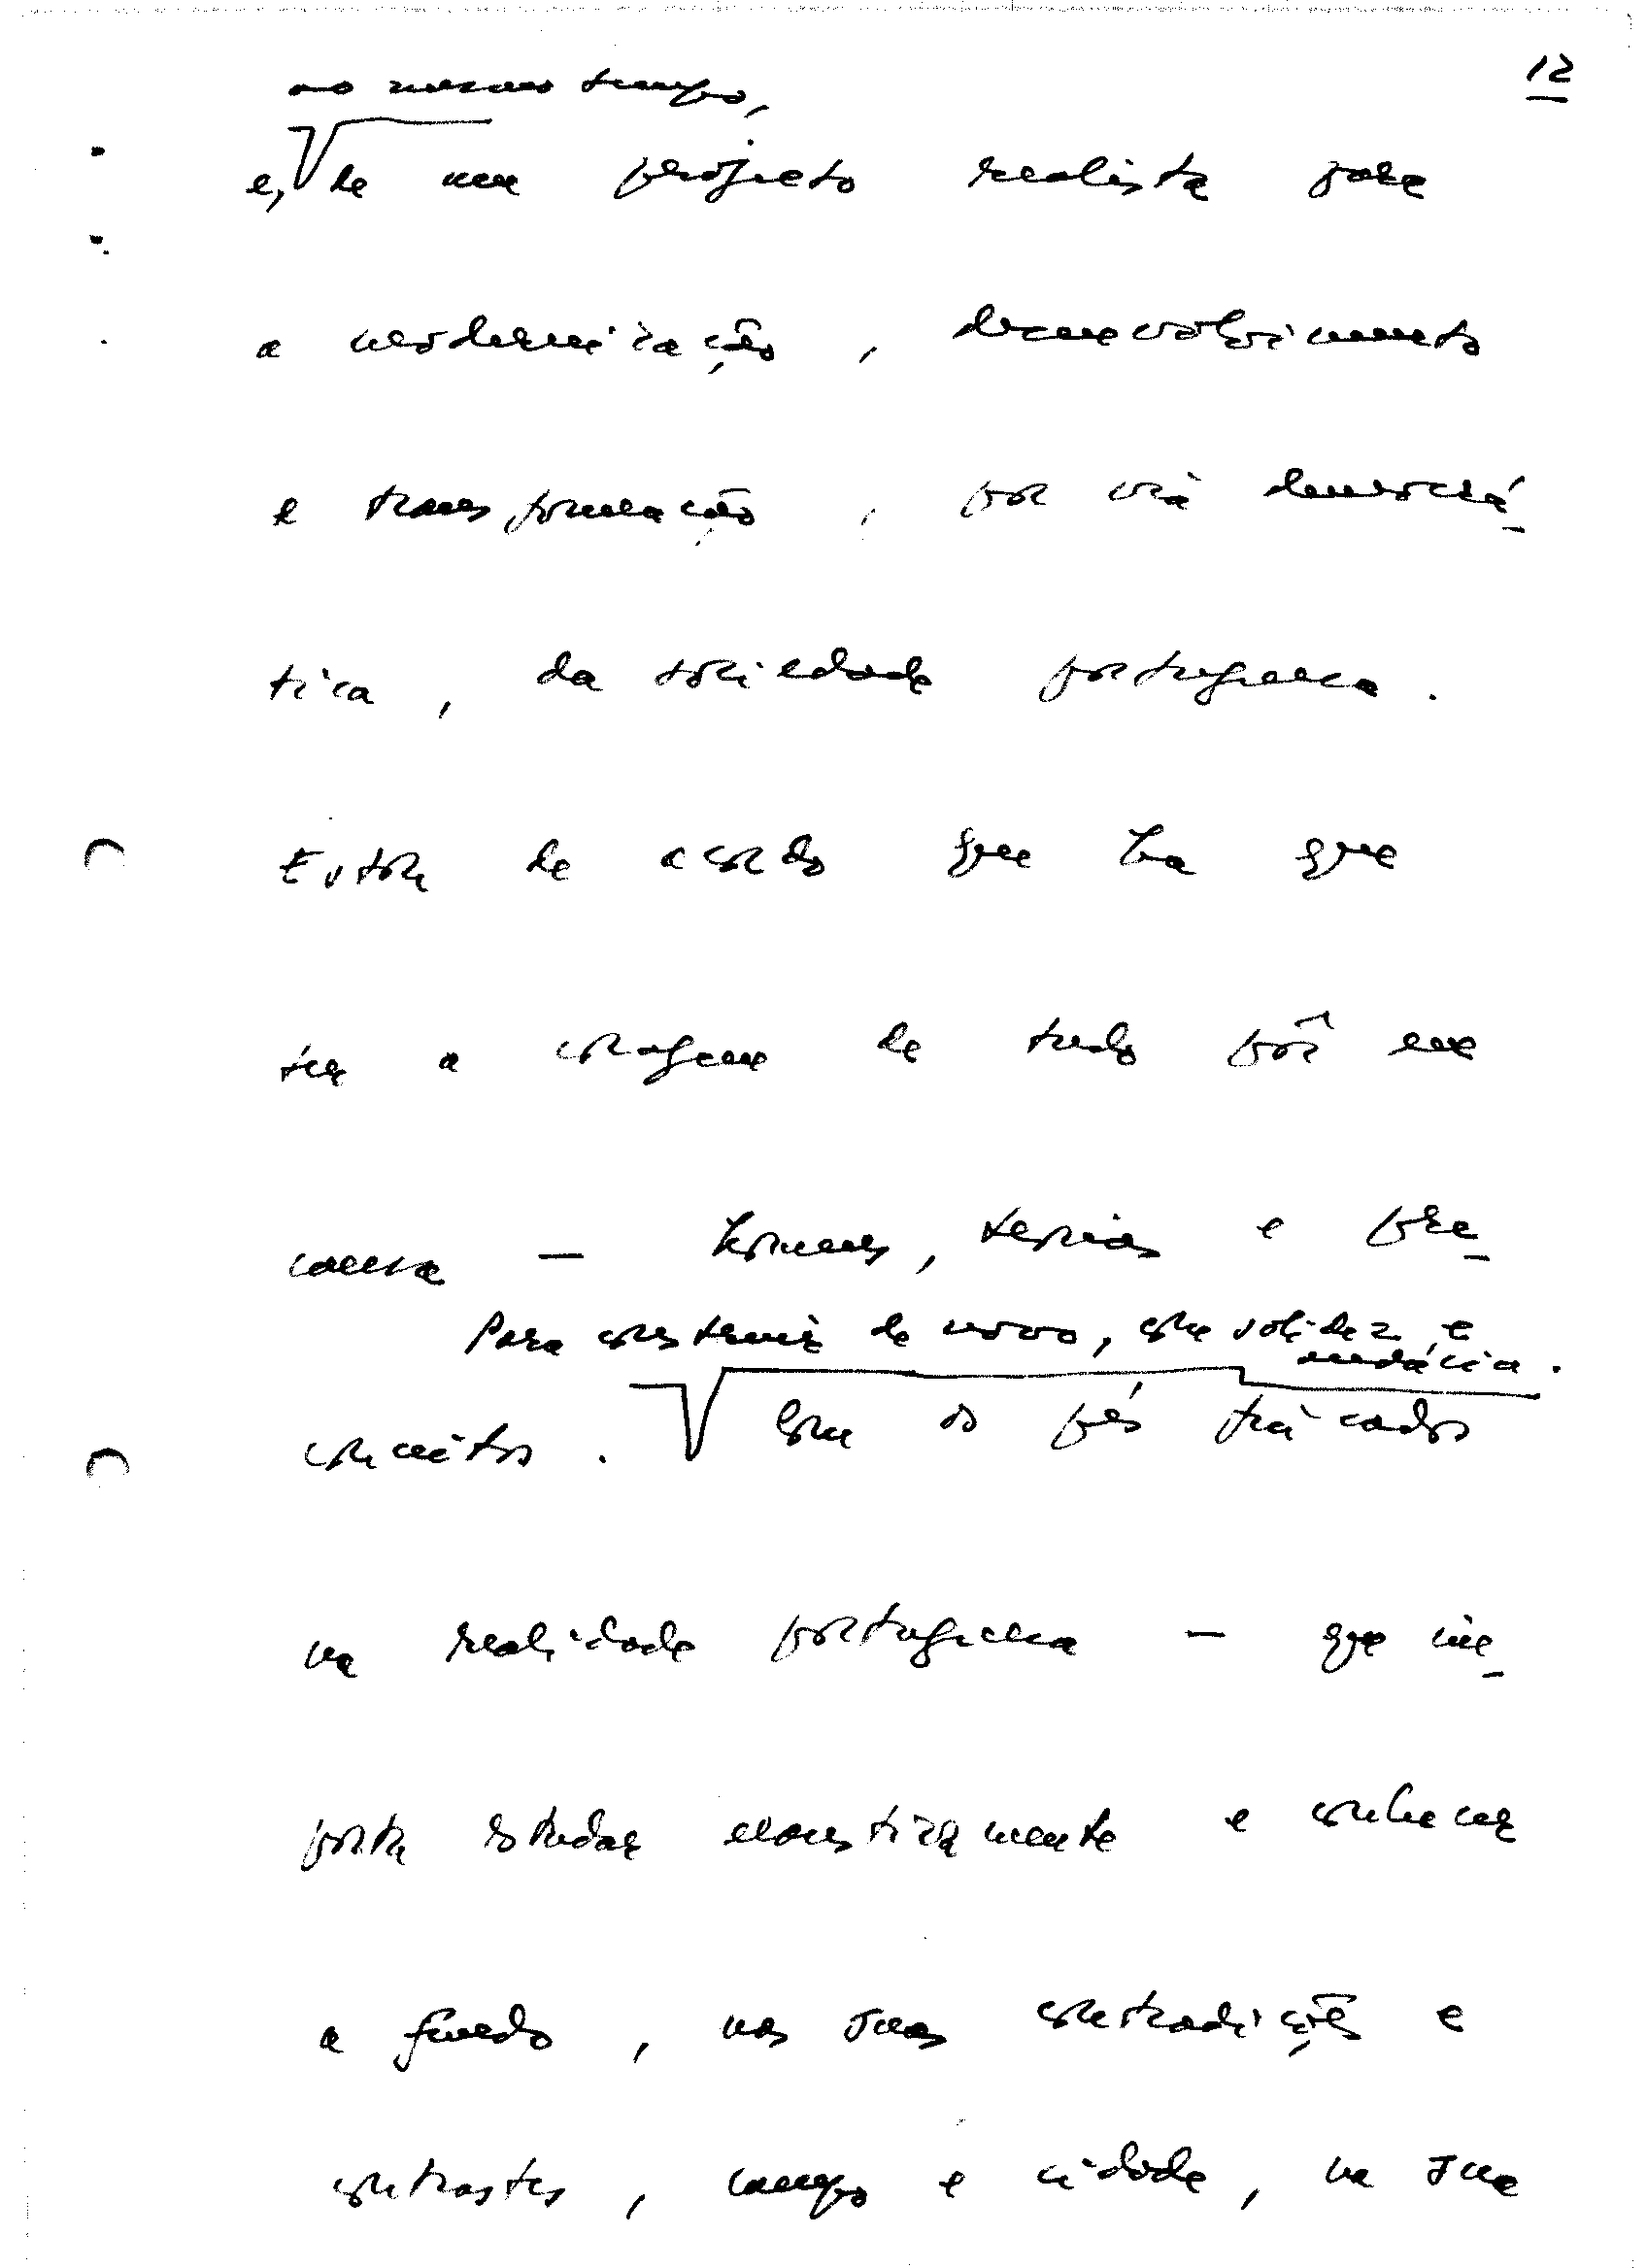 12
ao mesmo tempo,
e, de um projecto realista para
a modernização, desenvolvimento
e transformação, por via democrá-
tica, da sociedade portuguesa.
Estou de acordo que ha que
ter a coragem de tudo pôr em
causa — homens, teorias e pre-
Para construir de novo, com solidez e
audácia.
conceitos. Com os pés fincados
na realidade portuguesa — que im-
porta estudar exaustivamente e conhecer
a fundo, nas suas contradições e
contrastes, campo e cidade, na sua